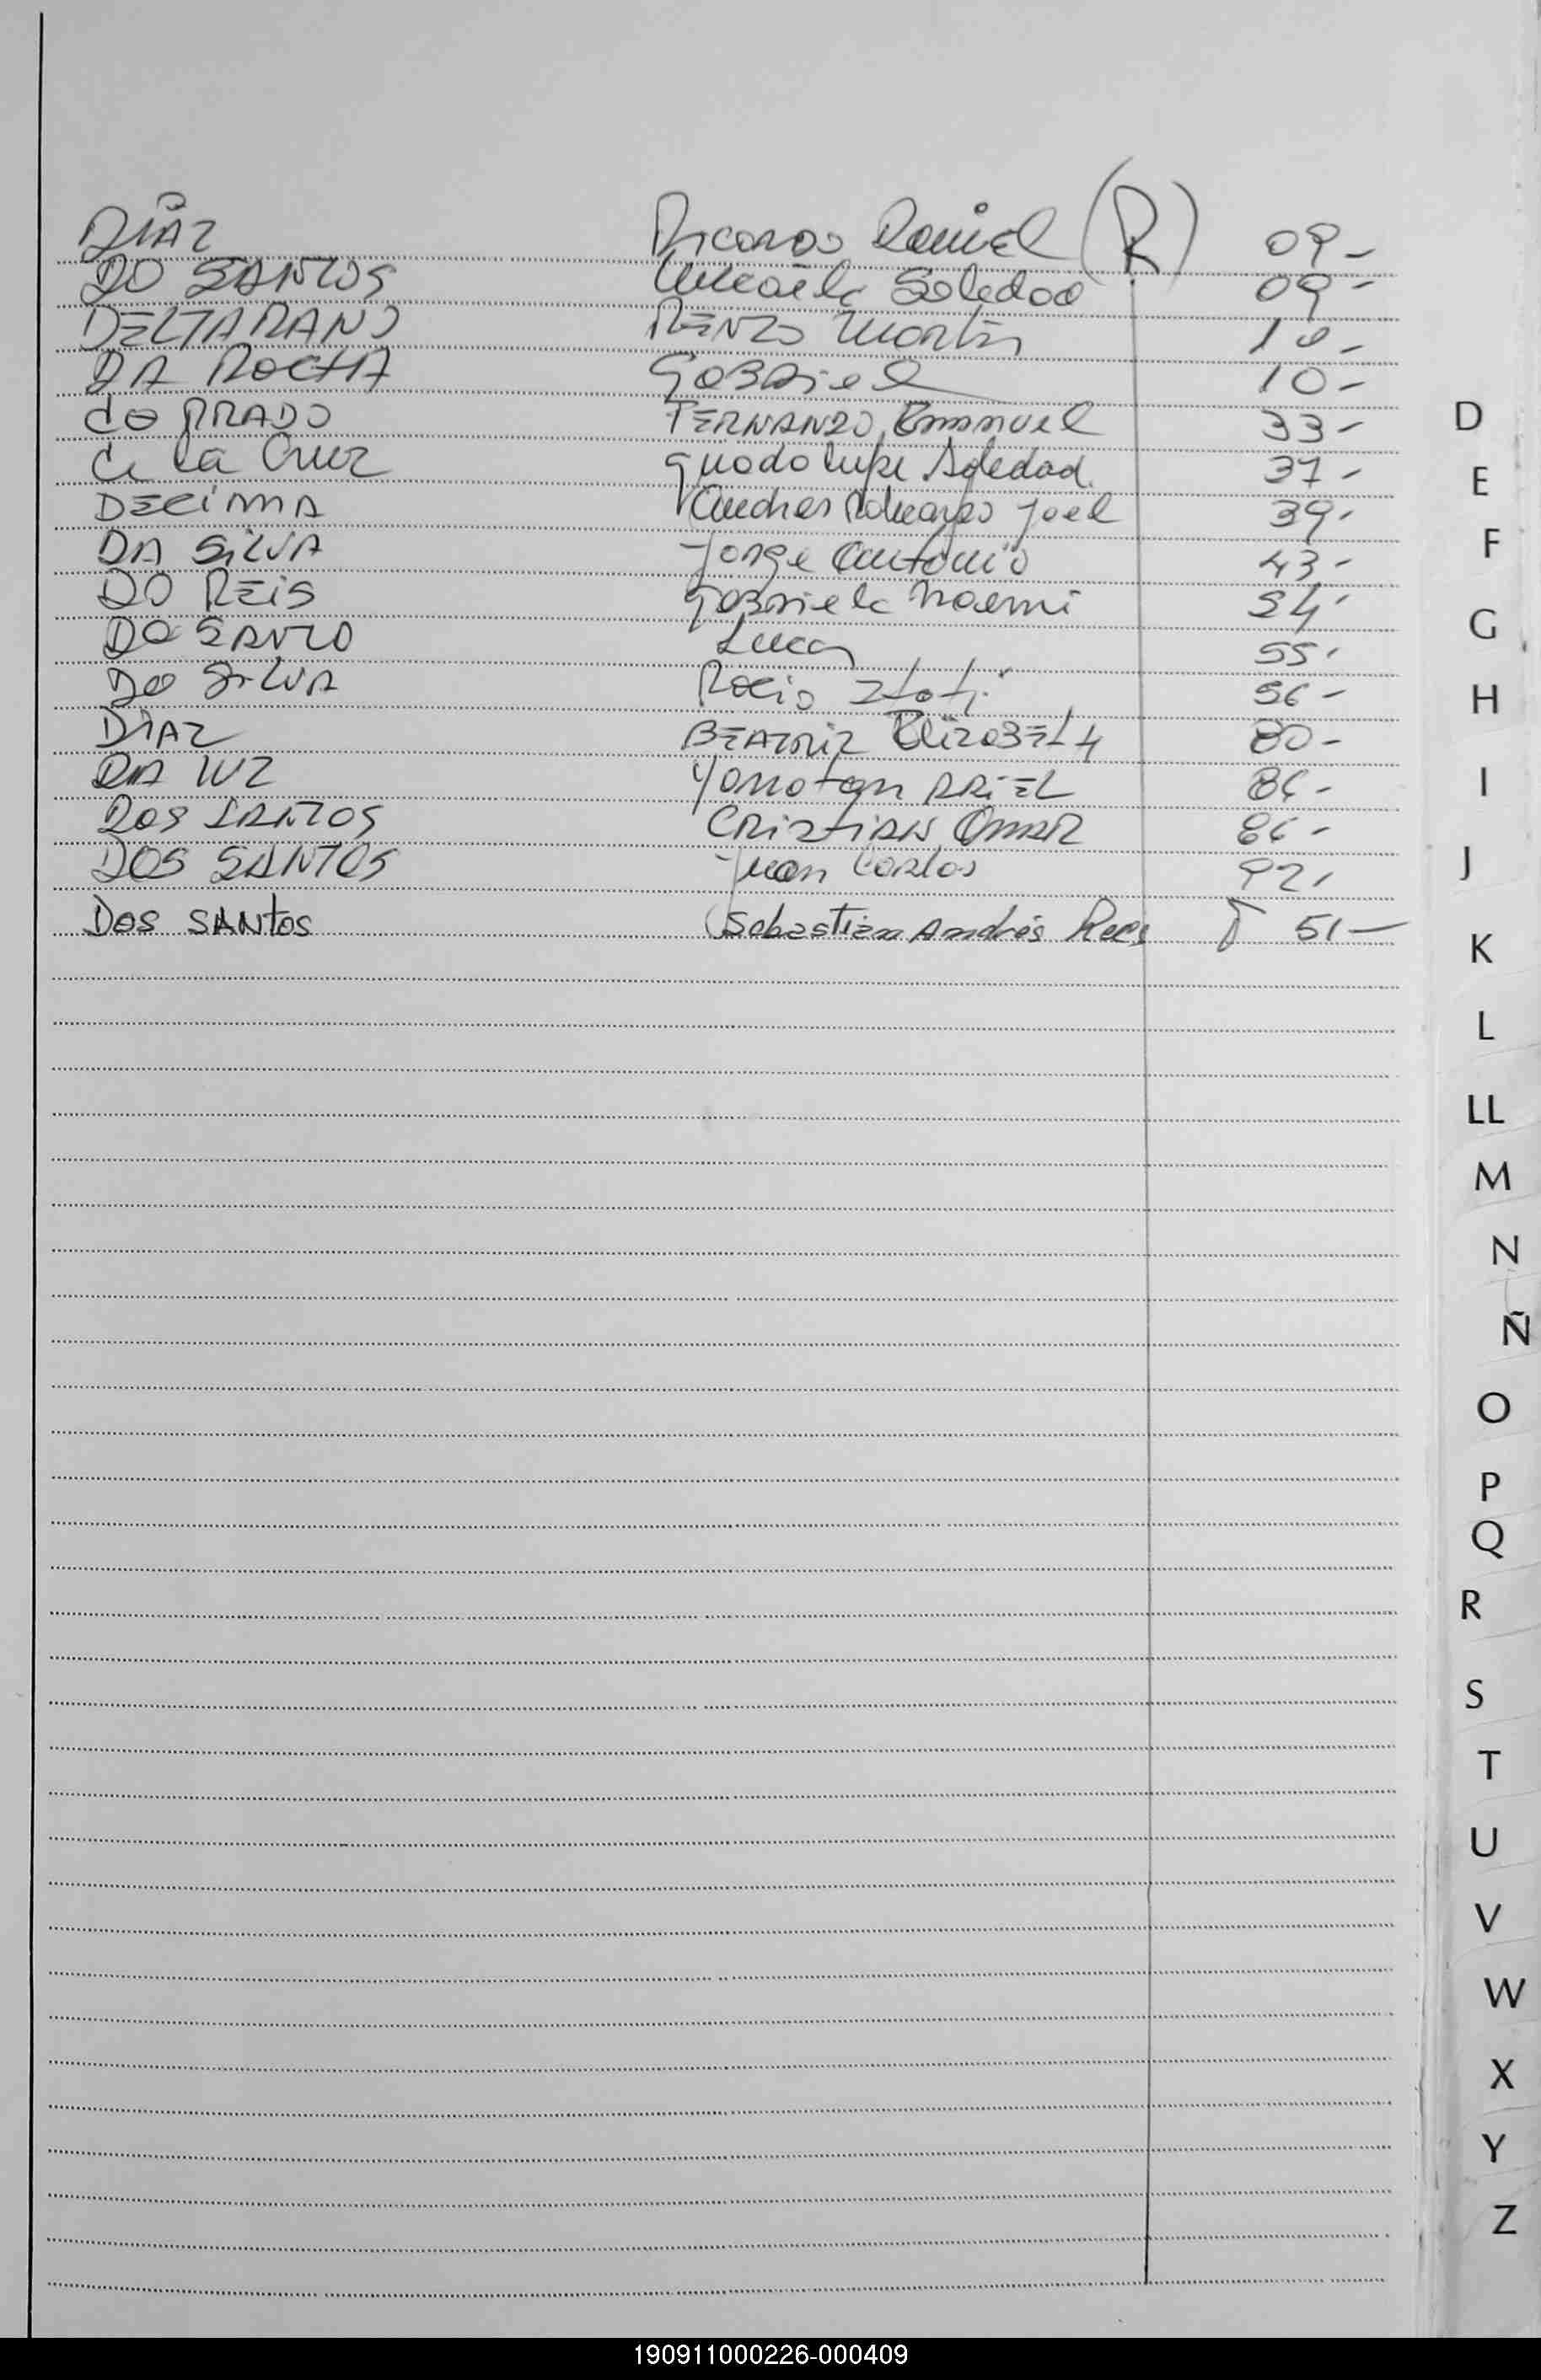 DIAZ Ricardo Daniel (R) 09-
DO SANTOS Micaela Soledad 09-
DELTARANO RENZO Martin 10-
DA ROCHA Gabriel 10-
do PRADO FERNANDO Emanuel 33-
de la Cruz Guadalupe Soledad 37-
DECIMMA Andres Joel 39-
DA SILVA Jorge Antonio 43-
DO REIS Gabriela Noemi 54-
DO SANTO Lucas 55-
DO SILVA Rocio 56-
DIAZ BEATRIZ ELIZABETH 80-
DA LUZ Yonatan ARIEL 86-
DOS SANTOS CRISTIAN OMAR 86-
DOS SANTOS Juan Carlos 92-
DOS SANTOS Sebastian Andrés 51-
D
E
F
G
H
I
J
K
L
LL
M
N
Ñ
O
P
Q
R
S
T
U
V
W
X
Y
Z
190911000226-000409